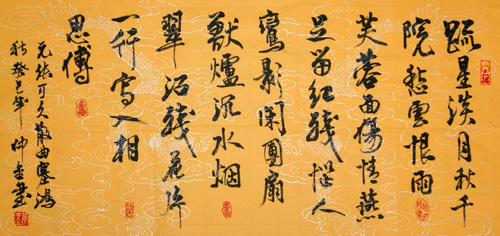 疏星淡月秋千
院愁雲恨雨
芙蓉面傷情燕
足留紅綫惱人
鸞影閑團扇
獸爐沉水烟
翠沼殘花片
一行寫入相
思傳
元張可久散曲塞鴻
秋癸巳年書